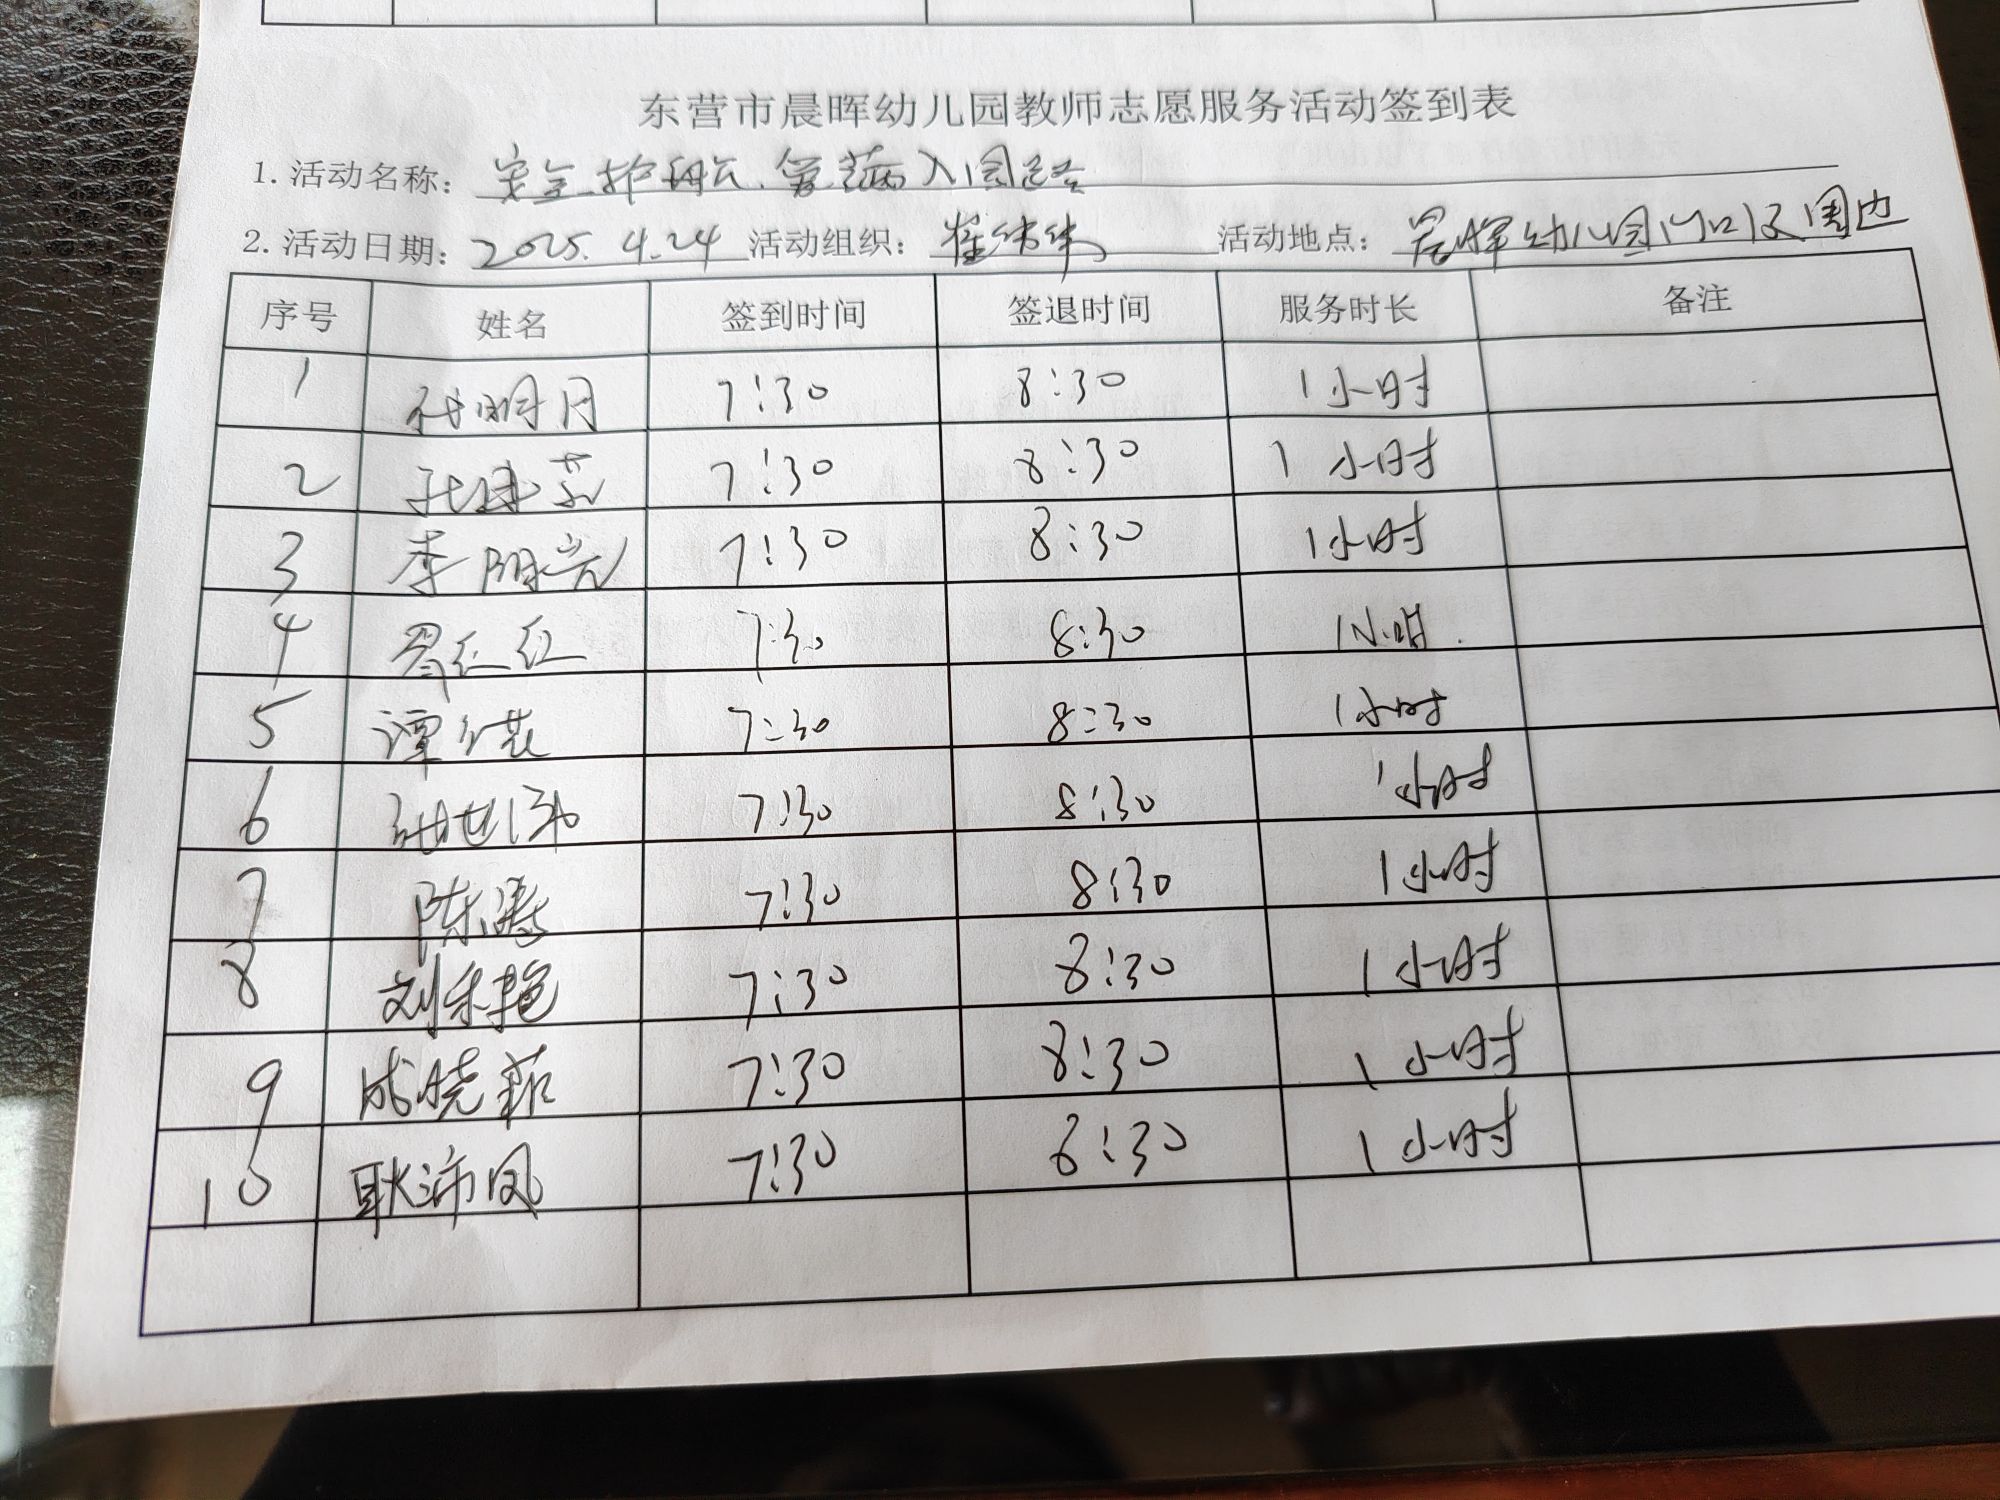 东营市晨晖幼儿园教师志愿服务活动签到表
1. 活动名称：安全护航、爱满入园路
2. 活动日期：2025.4.24 活动组织：崔 活动地点：晨晖幼儿园门口及周边
序号 姓名 签到时间 签退时间 服务时长 备注
1 代明月 7:30 8:30 1小时
2 7:30 8:30 1小时
3 李明亮 7:30 8:30 1小时
4 红红 7:30 8:30 1小时.
5 谭 7:30 8:30 1小时
6 7:30 8:30 1小时
7 陈 7:30 8:30 1小时
8 刘 艳 7:30 8:30 1小时
9 成晓菲 7:30 8:30 1小时
10 耿沛凤 7:30 8:30 1小时